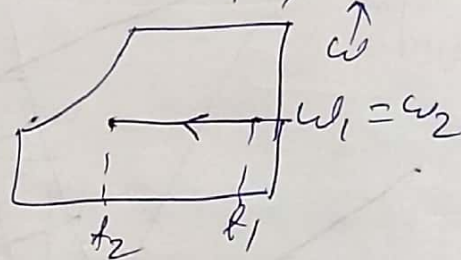 ω
ω₁ = ω₂
t₂ t₁